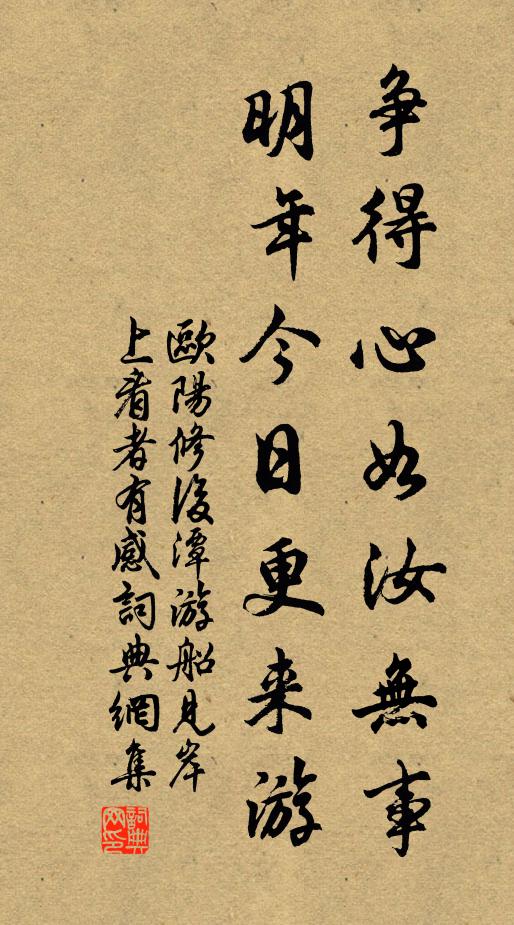 争得心如汝無事
明年今日更来游
歐陽修後潭游船見岸
上看者有感詞典網集
詞典
网印